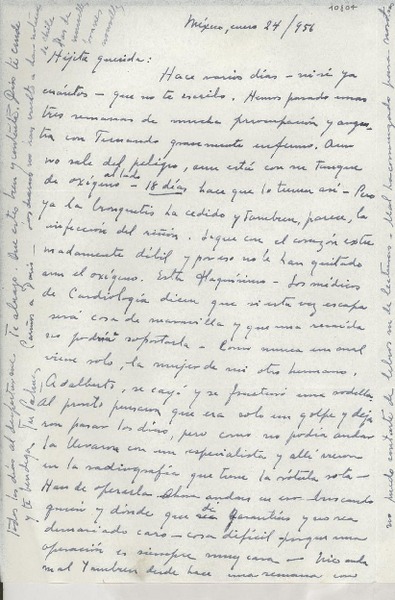 10804
México, enero 24/956
Hijita querida:
Hace varios días – ni sé ya
cuántos – que no te escribo. Hemos pasado unas
tres semanas de mucha preocupación y angus-
tia con Fernando gravemente enfermo. Aun
no sale del peligro, aun está con su tanque
de oxígeno al lado – 18 días hace que lo tienen así – Pero
ya la bronquitis ha cedido y también, parece, la
infección del riñón. Sigue con el corazón extre
madamente débil y por eso no le han quitado
aun el oxígeno. Está flaquísimo – Los médicos
de Cardiología dicen que si esta vez escapa
será cosa de maravilla y que una recaída
no podría soportarla – Como nunca un mal
viene solo, la mujer de mi otro hermano,
Adalberto, se cayó y se fracturó una rodilla.
Al pronto pensaron que era solo un golpe y deja
ron pasar los días, pero como no podía andar
la llevaron con un especialista y allí vieron
en la radiografía que tiene la rótula rota –
Han de operarla – Ahora andan en eso buscando
quién y dónde que dé garantías y no sea
demasiado caro – cosa difícil porque una
operación es siempre muy cara – Inés anda
mal también desde hace una semana con
no puedo contarte de libros ni de lecturas.
todos los días al despertarme. Te abrazo. Que estés bien y contenta. Dios te cuide
y te bendiga. Tu Palma.
Cariños a Doris